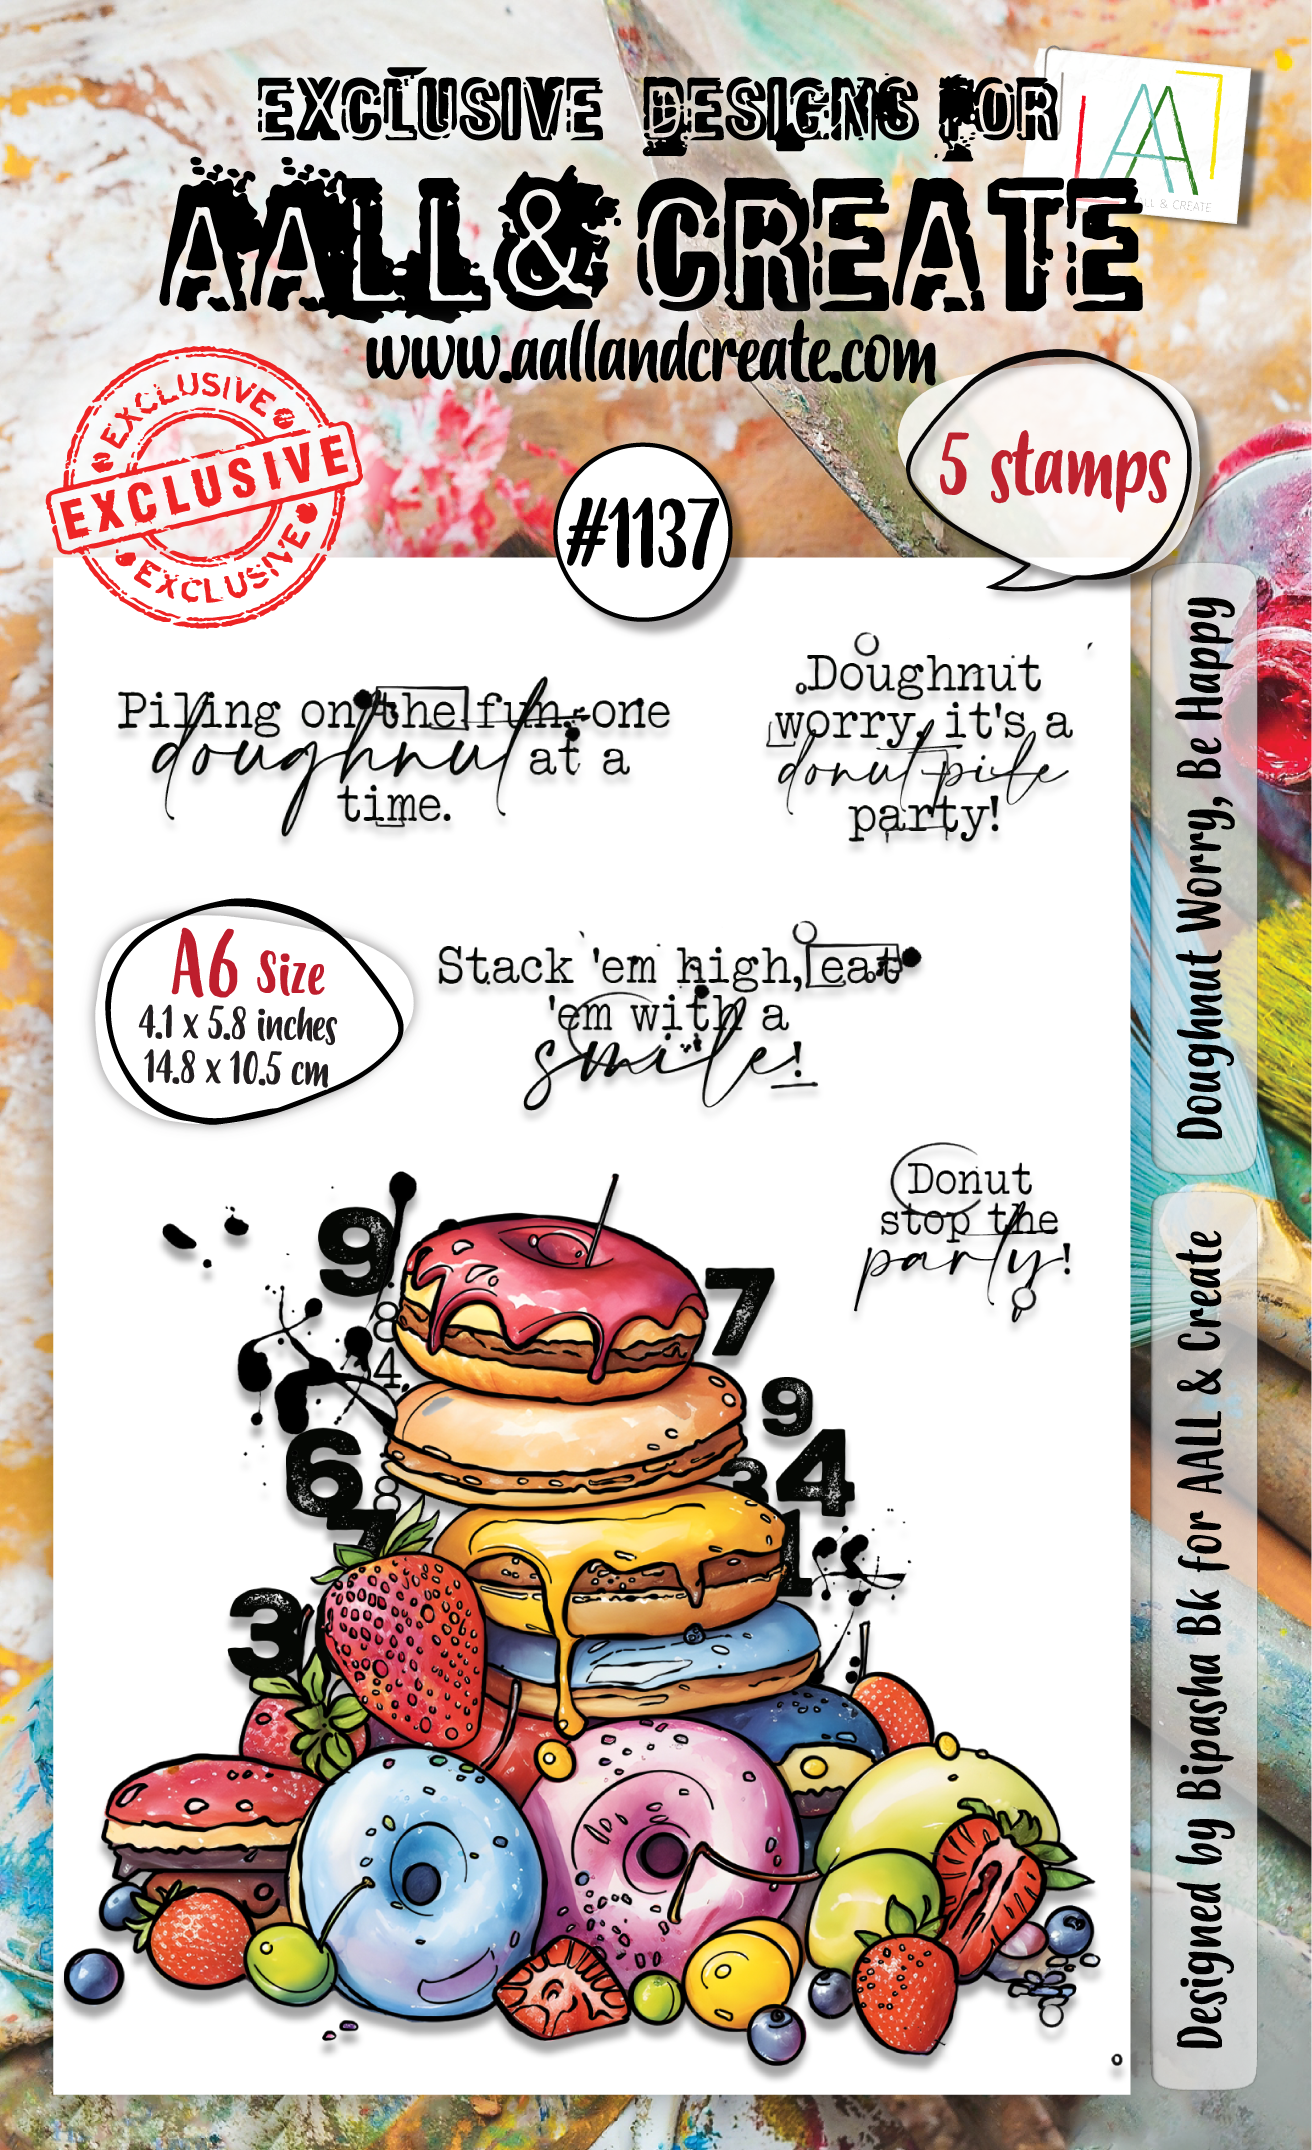 EXCLUSIVE DESIGNS FOR
AALL & CREATE
www.aallandcreate.com
AA
ALL & CREATE
EXCLUSIVE
EXCLUSIVE
EXCLUSIVE
5 stamps
#1137
Piling on the fun-one
doughnut at a
time.
Doughnut
worry, it's a
donut-pile
party!
A6 Size
4.1 x 5.8 inches
14.8 x 10.5 cm
Stack 'em high, eat
'em with a
smile!
Donut
stop the
party!
9
8
4
7
9
6
8
7
3
4
1
3
Doughnut Worry, Be Happy
Designed by Bipasha Bk for AALL & Create